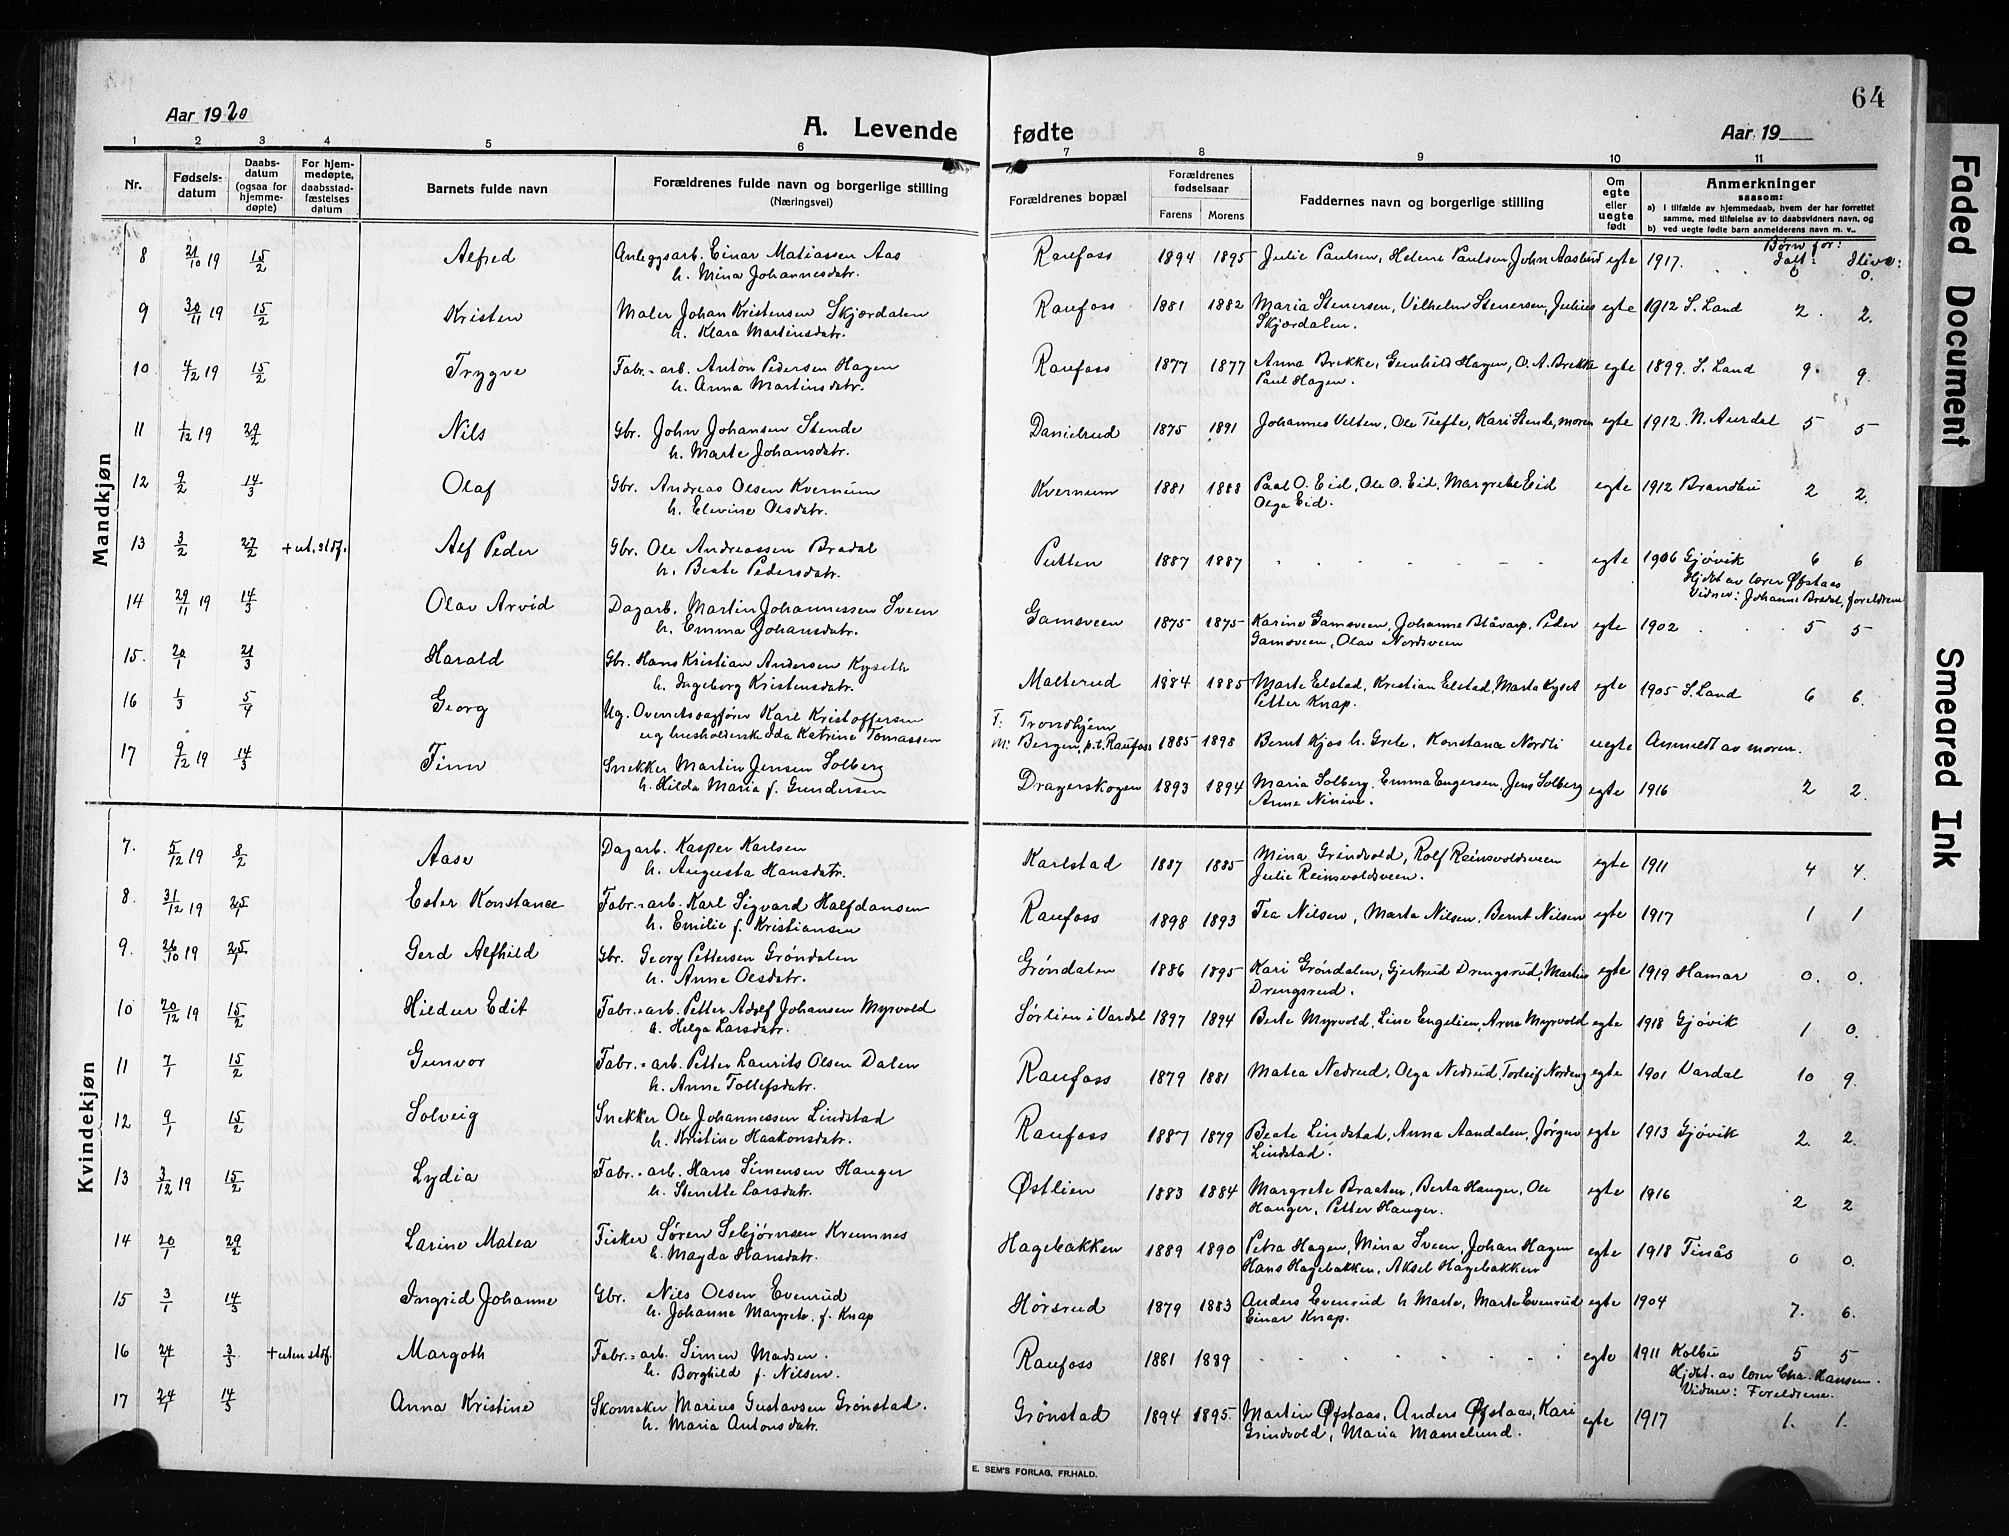 64
Aar 1920
A. Levende fødte
Aar 19
1 2 3 4 5 6 7 8 9 10 11
Nr.
Fødselsdatum
Daabsdatum (ogsaa for hjemmedøpte)
For hjemmedøpte, daabsstadfæstelses datum
Barnets fulde navn
Forældrenes fulde navn og borgerlige stilling (Næringsvei)
Forældrenes bopæl
Forældrenes fødselsaar
Farens Morens
Faddernes navn og borgerlige stilling
Om egte eller uegte født
Anmerkninger
saasom:
a) i tilfælde av hjemmedaab, hvem der har forrettet samme, med tilføielse av to daabsvidners navn, og
b) ved uegte fødte barn anmelderens navn m. v..
Børn før:
Ialt: Ilive:
Mandkjøn
8 21/10 19 15/2 Alfred Anleggsarb. Einar Matiassen Aas Raufoss 1894 1895 Julie Paulsen, Helene Paulsen, John Aaslund egte 1917. 0 0.
h. Mina Johannesdatr.
9 30/11 19 15/2 Kristen Maler Johan Kristensen Skjærdalen Raufoss 1881 1882 Maria Stenersen, Vilhelm Stenersen, Julius egte 1912 S. Land 2. 2.
h. Klara Martinsdatr. Skjærdalen.
10 4/12 19 15/2 Trygve Fabr.-arb. Anton Pedersen Hagen Raufoss 1877 1877 Anna Brekke, Gunhild Hagen, O. A. Brekke egte 1899. S. Land 9. 9.
h. Anna Martinsdatr. Paul Hagen.
11 1/12 19 29/2 Nils Gbr. John Johansen Stende Danielrud 1875 1891 Johannes Velten, Ole Tefte, Kari Stende, moren egte 1912 N. Aurdal 5 5
h. Marte Johansdatr.
12 9/2 14/3 Olaf Gbr. Andreas Olsen Kvernum Kvernum 1881 1888 Paal O. Eid, Ole O. Eid, Margrete Eid egte 1912 Brandbu 2 2.
h. Elevine Olsdatr. Olga Eid.
13 3/2 27/2 + ut. stdf. Alf Peder Gbr. Ole Andreassen Bradal Putten 1887 1887 egte 1906 Gjøvik 6 6
h. Beate Pedersdatr. Hjdøt av lærer Øfstaas
Vidner: Johanne Bradal, foreldrene
14 29/11 19 14/3 Olav Arvid Dagarb. Martin Johannessen Sveen Gamsveen 1875 1875 Karine Gamsveen, Johanne Blåvarp, Peder egte 1902 5 5
h. Emma Johansdatr. Gamsveen, Olav Nordsveen
15. 20/1 21/3 Harald Gbr. Hans Kristian Andersen Kyseth Malterud 1884 1885 Marte Elstad, Kristian Elstad, Marta Kyset egte 1905 S. Land 6 6.
h. Ingeborg Kristensdatr. Petter Knap.
16 1/3 5/4 Georg Ug. Overretssagfører Karl Kristoffersen F: Trondhjem
og husholderske Ida Katrine Tomassen M: Bergen, p.t. Raufoss 1885 1898 Bernt Kjos h. Grete, Konstanse Nordli uegte Anmeldt av moren.
17 9/12 19 14/3 Finn Snekker Martin Jensen Solberg Dragerskogen 1893 1894 Maria Solberg, Emma Engersen, Jens Solberg egte 1916 2 2.
h. Hilda Maria f. Gundersen Anne Ninive.
Kvindekjøn
7. 5/12 19 8/2 Aase Dagarb. Kasper Karlsen Karlstad 1887 1885 Mina Grindvold, Rolf Reinsvoldsveen egte 1911 4 4.
h. Augusta Hansdatr. Julie Reinsvoldsveen.
8. 31/12 19 25/1 Ester Konstance Fabr.-arb. Karl Sigvard Halfdansen Raufoss 1898 1893 Tea Nilsen, Marta Nilsen, Bernt Nilsen egte 1917 1 1
h. Emilie f. Kristiansen
9. 26/10 19 25/1 Gerd Alfhild Gbr. Georg Pettersen Grøndalen Grøndalen 1886 1895 Kari Grøndalen, Gjertrud Drengsrud, Martin egte 1919 Hamar 0. 0.
h. Anne Olsdatr. Drengsrud.
10 20/12 19 15/2 Hildur Edit Fabr.-arb. Petter Adolf Johansen Myrvold Sørlien i Vardal 1897 1894 Berte Myrvold, Line Engelien, Anna Myrvold egte 1918 Gjøvik 1 0.
h. Helga Larsdatr.
11 7/1 15/2 Gunvor Fabr.-arb. Petter Laurits Olsen Dalen Raufoss 1879 1881 Matea Nedrud, Olga Nedrud, Torleif Nordeng egte 1901 Vardal 10 9.
h. Anne Tollefsdatr.
12 9/1 15/2 Solveig Snekker Ole Johannessen Lindstad Raufoss 1887 1879 Beate Lindstad, Anna Aandalen, Jørgen egte 1913 Gjøvik 2. 2.
h. Kristine Haakonsdatr. Lindstad.
13 3/12 19 15/2 Lydia Fabr.-arb. Hans Simensen Hanger Østlien 1883 1884 Margrete Braaten, Berta Hanger, Ole egte 1916 2 2
h. Stenette Larsdatr. Hanger, Petter Hanger.
14 20/1 29/2 Larine Matea Fisker Søren Sebjørnsen Krumnes Hagebakken 1889 1890 Petra Hagen, Mina Sveen, Johan Hagen egte 1918 Tinås 0 0.
h. Magda Hansdatr. Hans Hagebakken, Aksel Hagebakken
15 3/1 14/3 Ingrid Johanne Gbr. Nils Olsen Evenrud Hørsrud 1879 1883 Anders Evenrud h Marte, Marte Evenrud egte 1904 7. 6.
h. Johanne Margrete f. Knap Einar Knap.
16 24/1 3/3 + uten stdf. Margoth Fabr.-arb. Simen Madsen. Raufoss 1881 1889 egte 1911 Kolbu 5 5
h. Borghild f. Nilsen. Hjdøt. av lærer Chr. Hansen.
Vidner: Foreldrene.
17 24/1 14/3 Anna Kristine Skomaker Marius Gustavsen Grønstad. Grønstad 1894 1895. Martin Øfstaas, Anders Øfstaas, Kari egte 1917 1. 1.
h. Maria Antonsdatr. Grindvold, Maria Mamelund.
E. SEM'S FORLAG, FR.HALD.
Faded Document
Smeared Ink